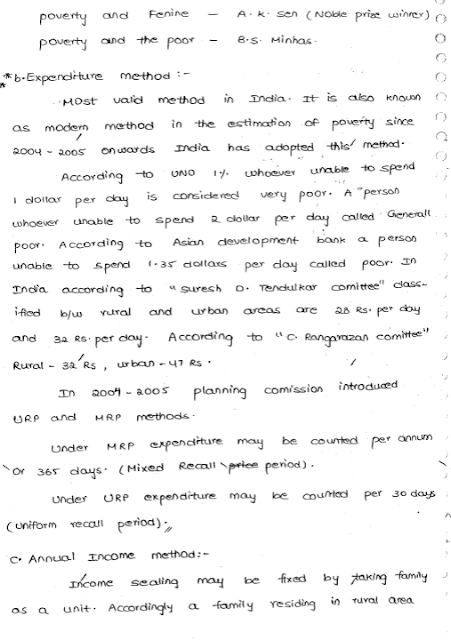 poverty and Fenine - A. K. Sen (Noble prize winner)
poverty and the poor - B.S. Minhas.
* b. Expenditure method :-
Most valid method in India. It is also known
as modern method in the estimation of poverty since
2004 - 2005 onwards India has adopted this method.
According to UNO 1%. whoever unable to spend
1 dollar per day is considered very poor. A "person
whoever unable to spend 2 dollar per day called Generall
poor. According to Asian development bank a person
unable to spend 1.35 dollars per day called poor. In
India according to "Suresh D. Tendulkar comittee" class-
ified b/w rural and urban areas are 28 Rs. per day
and 32 Rs. per day. According to "C. Rangarazan comittee"
Rural - 32 Rs, urban - 47 Rs.
In 2004 - 2005 planning comission introduced
URP and MRP methods.
Under MRP expenditure may be counted per annum
or 365 days. (Mixed Recall price period).
Under URP expenditure may be counted per 30 days
(uniform recall period).
C. Annual Income method:-
Income sealing may be fixed by taking family
as a unit. Accordingly a family residing in rural area